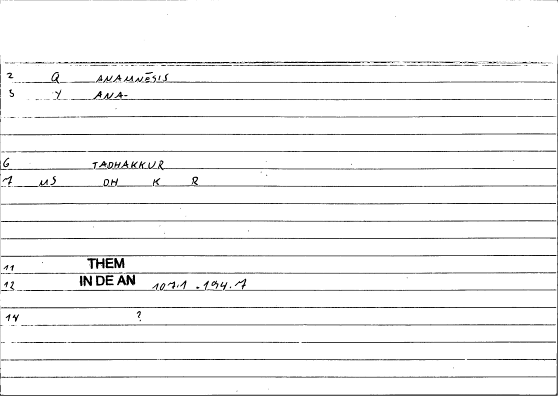 2 Q ANAMNĒSIS
5 Y ANA-
6 TADHAKKUR
7 MS DH K R
11 THEM
12 IN DE AN 107.1 - 194.7
14 ?